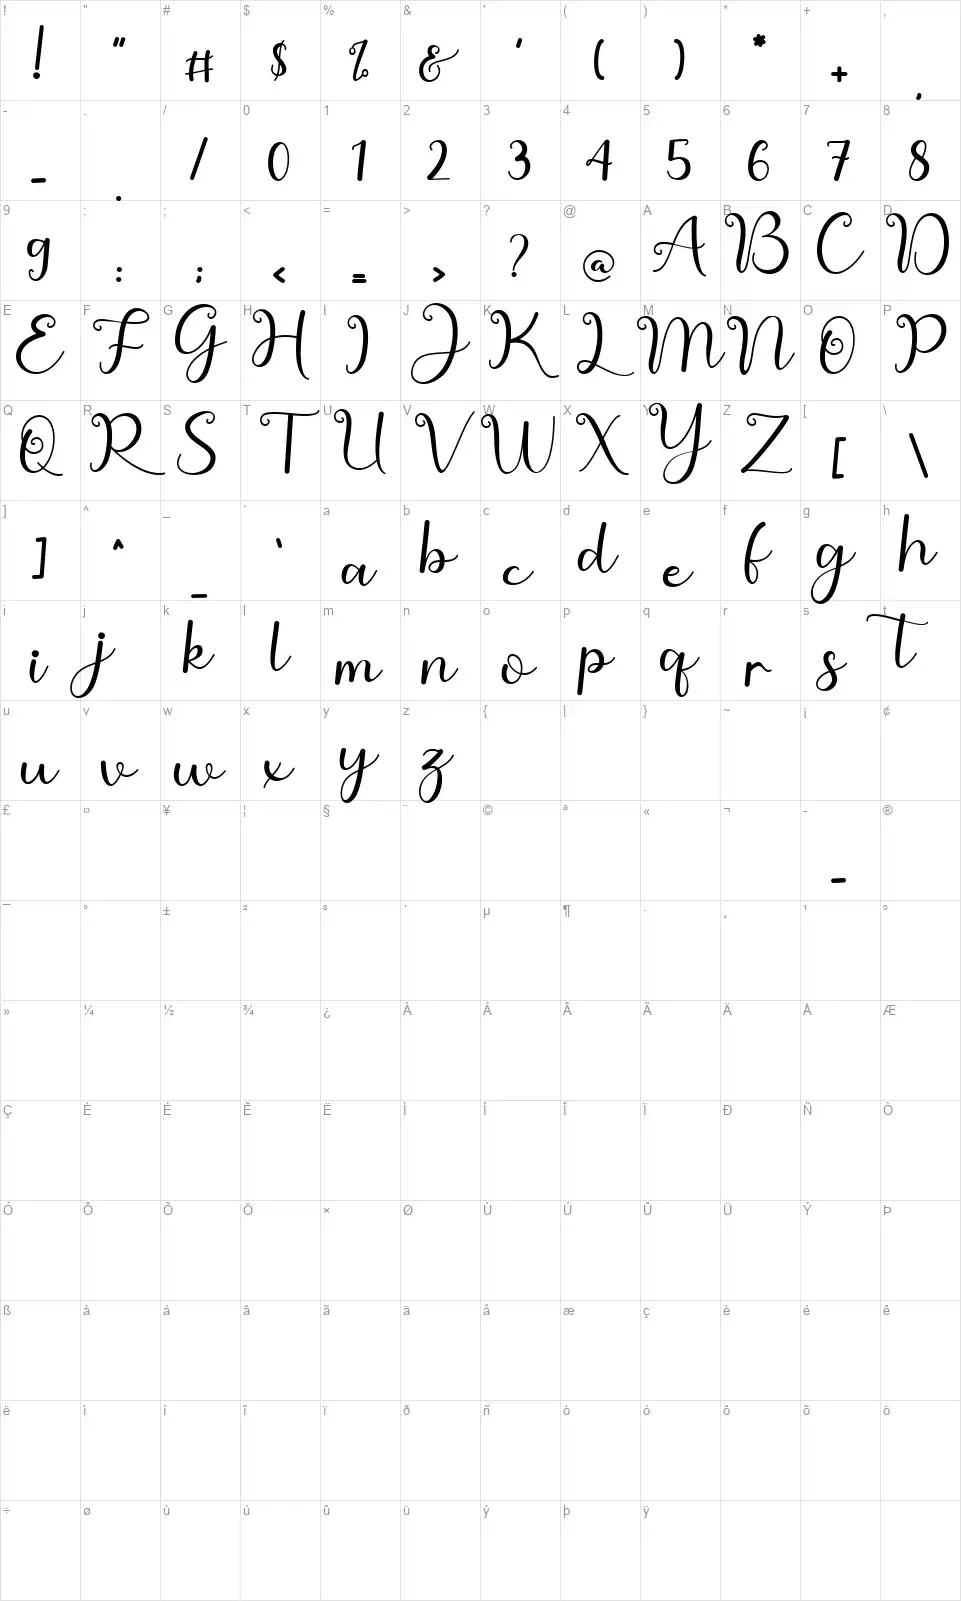 ! " # $ % & ' ( ) * + ,
! " # $ % & ' ( ) * + ,
- . / 0 1 2 3 4 5 6 7 8
- . / 0 1 2 3 4 5 6 7 8
9 : ; < = > ? @ A B C D
9 : ; < = > ? @ A B C D
E F G H I J K L M N O P
E F G H I J K L M N O P
Q R S T U V W X Y Z [ \
Q R S T U V W X Y Z [ \
] ^ _ ` a b c d e f g h
] ^ _ ` a b c d e f g h
i j k l m n o p q r s t
i j k l m n o p q r s t
u v w x y z { | } ~ ¡ ¢
u v w x y z
£ ¤ ¥ ¦ § ¨ © ª « ¬ - ®
-
¯ ° ± ² ³ ´ µ ¶ · ¸ ¹ º
» ¼ ½ ¾ ¿ À Á Â Ã Ä Å Æ
Ç È É Ê Ë Ì Í Î Ï Ð Ñ Ò
Ó Ô Õ Ö × Ø Ù Ú Û Ü Ý Þ
ß à á â ã ä å æ ç è é ê
ë ì í î ï ð ñ ò ó ô õ ö
÷ ø ù ú û ü ý þ ÿ